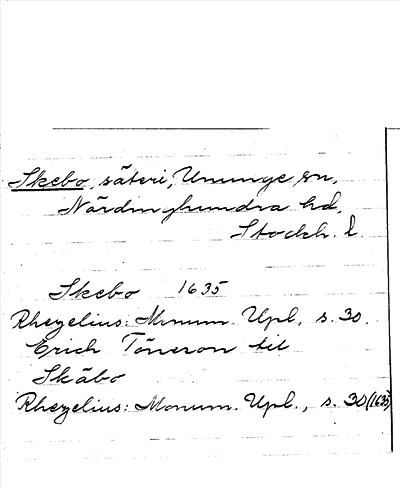 Skebo, säteri, Ununge sn,
Närdinghundra hd,
Stockh. l.
Skebo 1635
Rhezelius: Monum. Upl., s. 30.
Erich Töneson til
Skäbo
Rhezelius: Monum. Upl., s. 30 (1635)